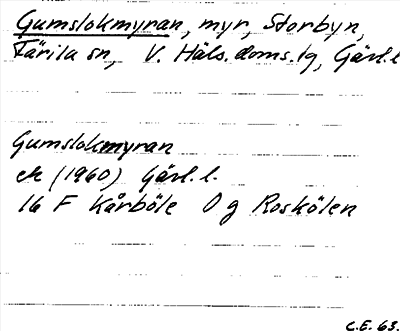 Gumslokmyran, myr, Storbyn,
Färila sn, V. Häls. doms. lg, Gävl. l
Gumslokmyran
ek (1960) Gävl. l.
16 F Kårböle 0 g Roskölen
C.E. 63.